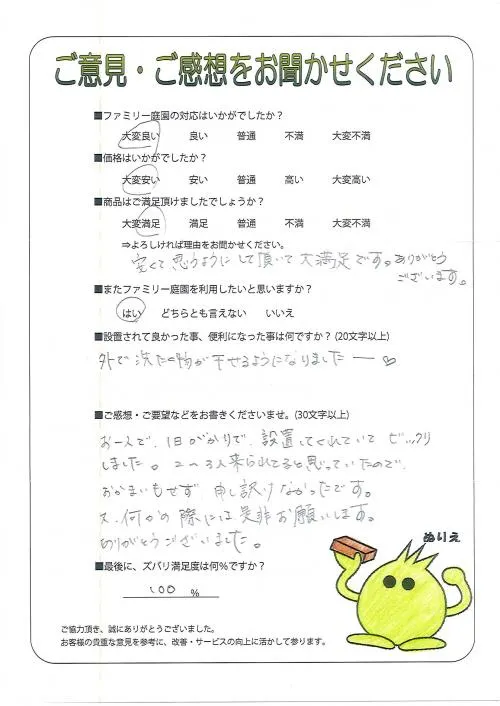 ご意見・ご感想をお聞かせください
■ファミリー庭園の対応はいかがでしたか？
大変良い 良い 普通 不満 大変不満
■価格はいかがでしたか？
大変安い 安い 普通 高い 大変高い
■商品はご満足頂けましたでしょうか？
大変満足 満足 普通 不満 大変不満
⇒よろしければ理由をお聞かせください。
安くて思うようにして頂いて大満足です。ありがとう
ございます。
■またファミリー庭園を利用したいと思いますか？
はい どちらとも言えない いいえ
■設置されて良かった事、便利になった事は何ですか？(20文字以上)
外で洗たく物が干せるようになりましたー♡
■ご感想・ご要望などをお書きくださいませ。(30文字以上)
お一人で、1日がかりで、設置してくれていて ビックリ
しました。2〜3人来られてると思っていたので、
おかまいもせず、申し訳けなかったです。
又、何かの際には是非お願いします。
ありがとうございました。
ぬりえ
■最後に、ズバリ満足度は何％ですか？
100 %
ご協力頂き、誠にありがとうございました。
お客様の貴重な意見を参考に、改善・サービスの向上に活かして参ります。